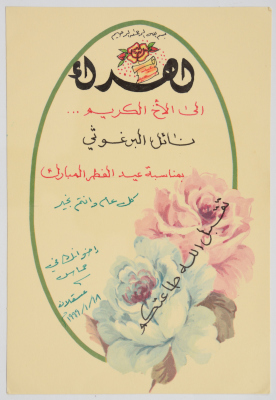 بسم الله الرحمن الرحيم
اهداء
الى الأخ الكريم ...
نائل البرغوثي
بمناسبة عيد الفطر المبارك
كل عام وانتم بخير
تقبل الله طاعتكم
عسقلان